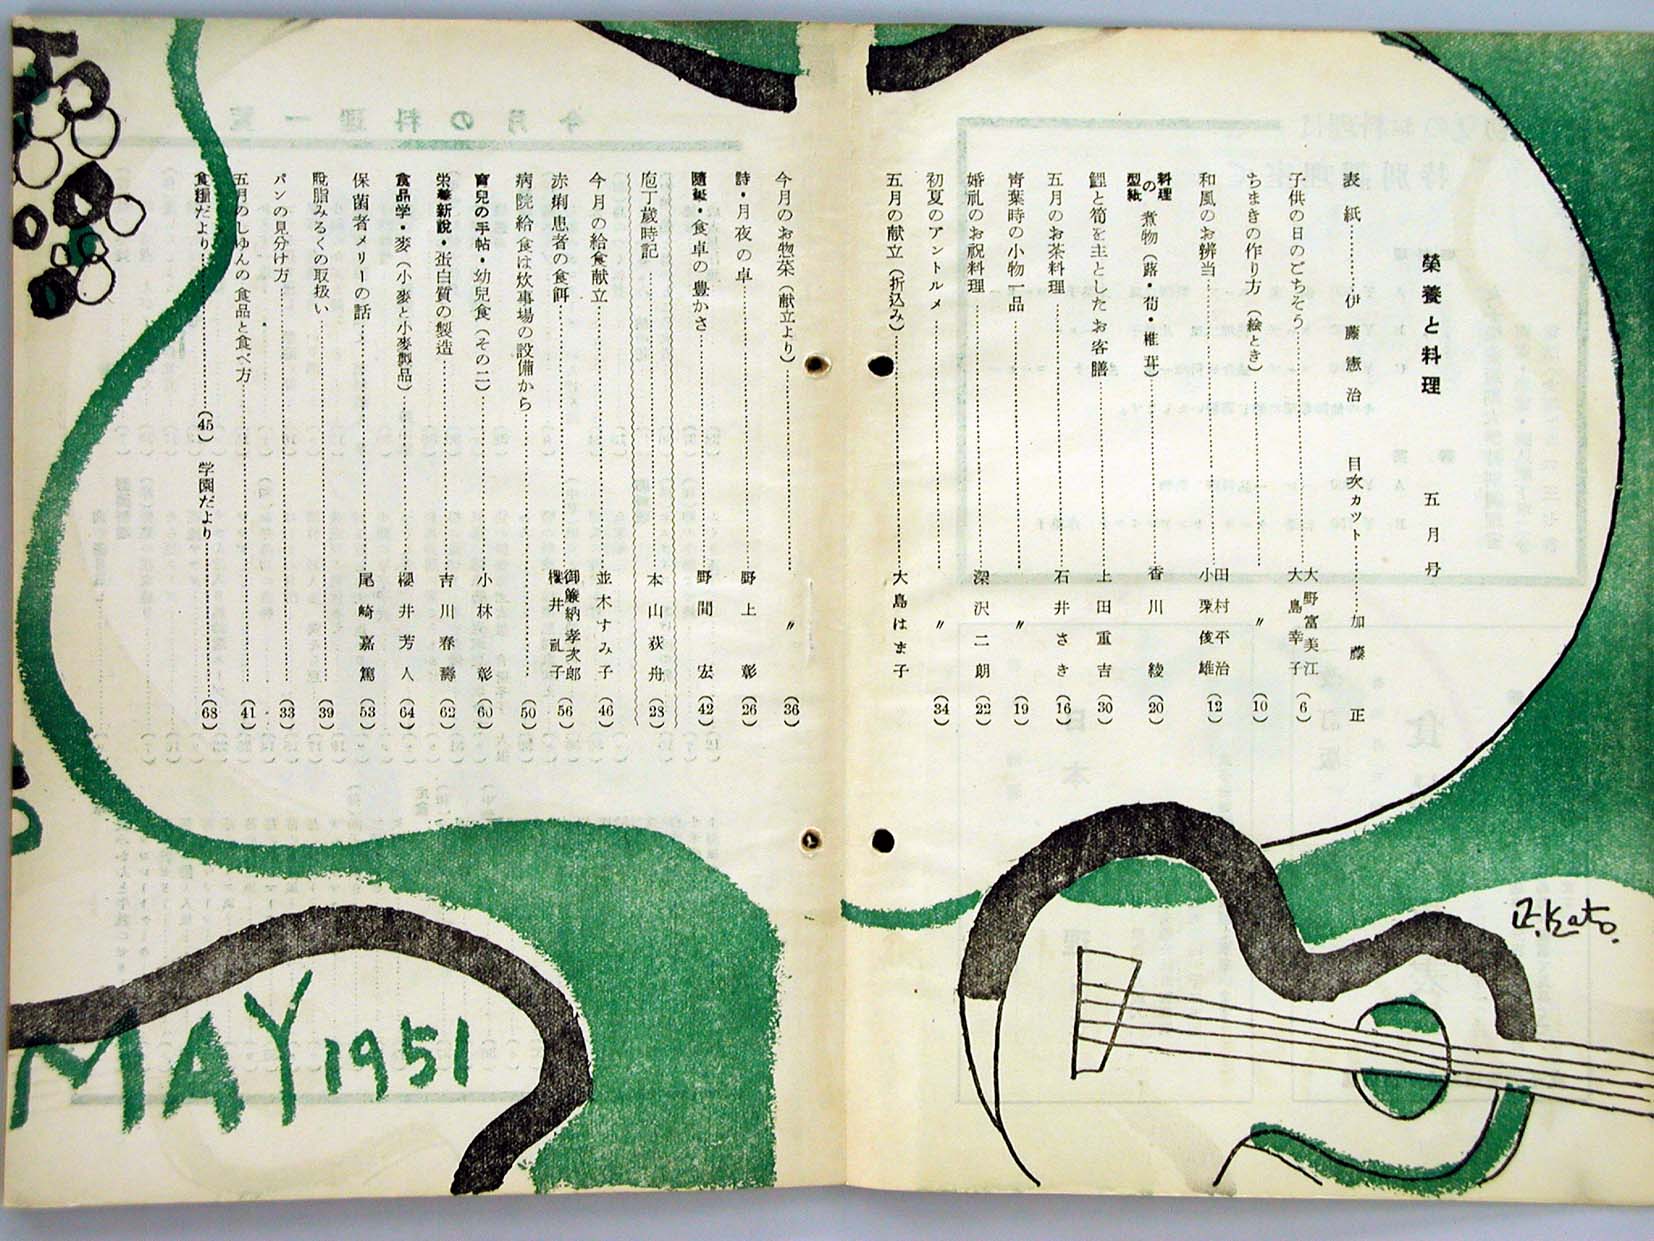 榮養と料理　五月号
表紙…………伊藤憲治　目次カット…………加藤正
子供の日のごちそう…………大野富美江　大島幸子（6）
ちまきの作り方（絵とき）…………〃（10）
和風のお辨当…………田村平治　小栗俊雄（12）
料理の型紙　煮物（蕗・筍・椎茸）…………香川綾（20）
鯉と筍を主としたお客膳…………上田重吉（30）
五月のお茶料理…………石井さき（16）
青葉時の小物一品…………〃（19）
婚礼のお祝料理…………深沢二朗（22）
初夏のアントルメ…………〃（34）
五月の献立（折込み）…………大島はま子
今月のお惣菜（献立より）…………〃（36）
詩・月夜の卓…………野上彰（26）
隨筆・食卓の豊かさ…………野間宏（42）
庖丁歲時記…………本山荻舟（28）
今月の給食献立…………並木すみ子（46）
赤痢患者の食餌…………御簾納孝次郎　櫻井乱子（56）
病院給食は炊事場の設備から…………（50）
育兒の手帖・幼兒食（その二）…………小林彰（60）
栄養新說・蛋白質の製造…………吉川春壽（62）
食品学・麥（小麥と小麥製品）…………櫻井芳人（64）
保菌者メリーの話…………尾崎嘉篤（53）
脫脂みるくの取扱い…………（39）
パンの見分け方…………（33）
五月のしゅんの食品と食べ方…………（41）
食糧だより…………（45）　学園だより…………（68）
MAY 1951
Kato.